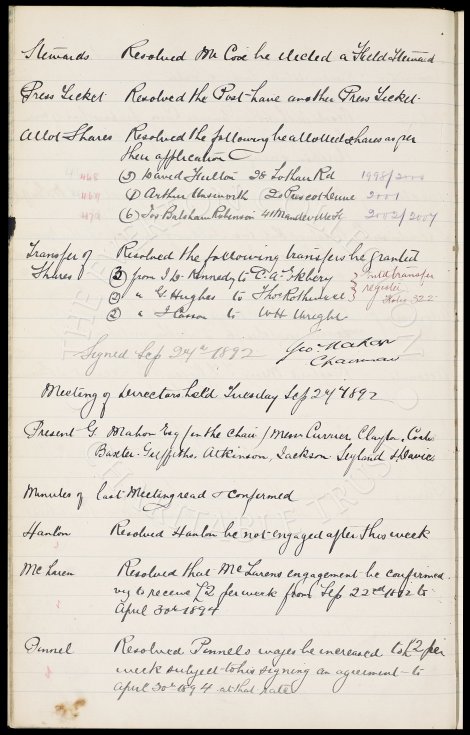 Stewards Resolved Mr Cox be elected a Field Steward
Press Ticket Resolved the Post have another Press Ticket
Allot Shares Resolved the following be allotted shares as per
their application
(3) David Fulton 28 Lothair Rd 1998/2000
(1) Arthur Unsworth 20 Prescot Drive 2001
(6) Jos Balsham Robinson 41 Mandeville St 2002/2007
Transfer of Resolved the following transfers be granted
Shares (3) from J W Kennedy to C. A. Ekbery
(2) " G Hughes to Thos Rothwell
(2) " J Casson to W H Wright
transfer
register
folio 322
Signed Sep 27th 1892 Geo Mahon
Chairman
Meeting of Directors held Tuesday Sep 27th 1892
Present G. Mahon Esq (in the Chair) Messrs Currier, Clayton, Coates
Baxter Griffiths, Atkinson, Jackson Leyland & Davies
Minutes of last Meeting read & confirmed
Hanlon Resolved Hanlon be not engaged after this week
McLaren Resolved that McLarens engagement be confirmed
to receive £2 per week from Sep 22nd 1892 to
April 30th 1894
Pinnel Resolved Pinnels wages be increased to £2 per
week subject to his signing an agreement to
April 30th 1894 at that rate